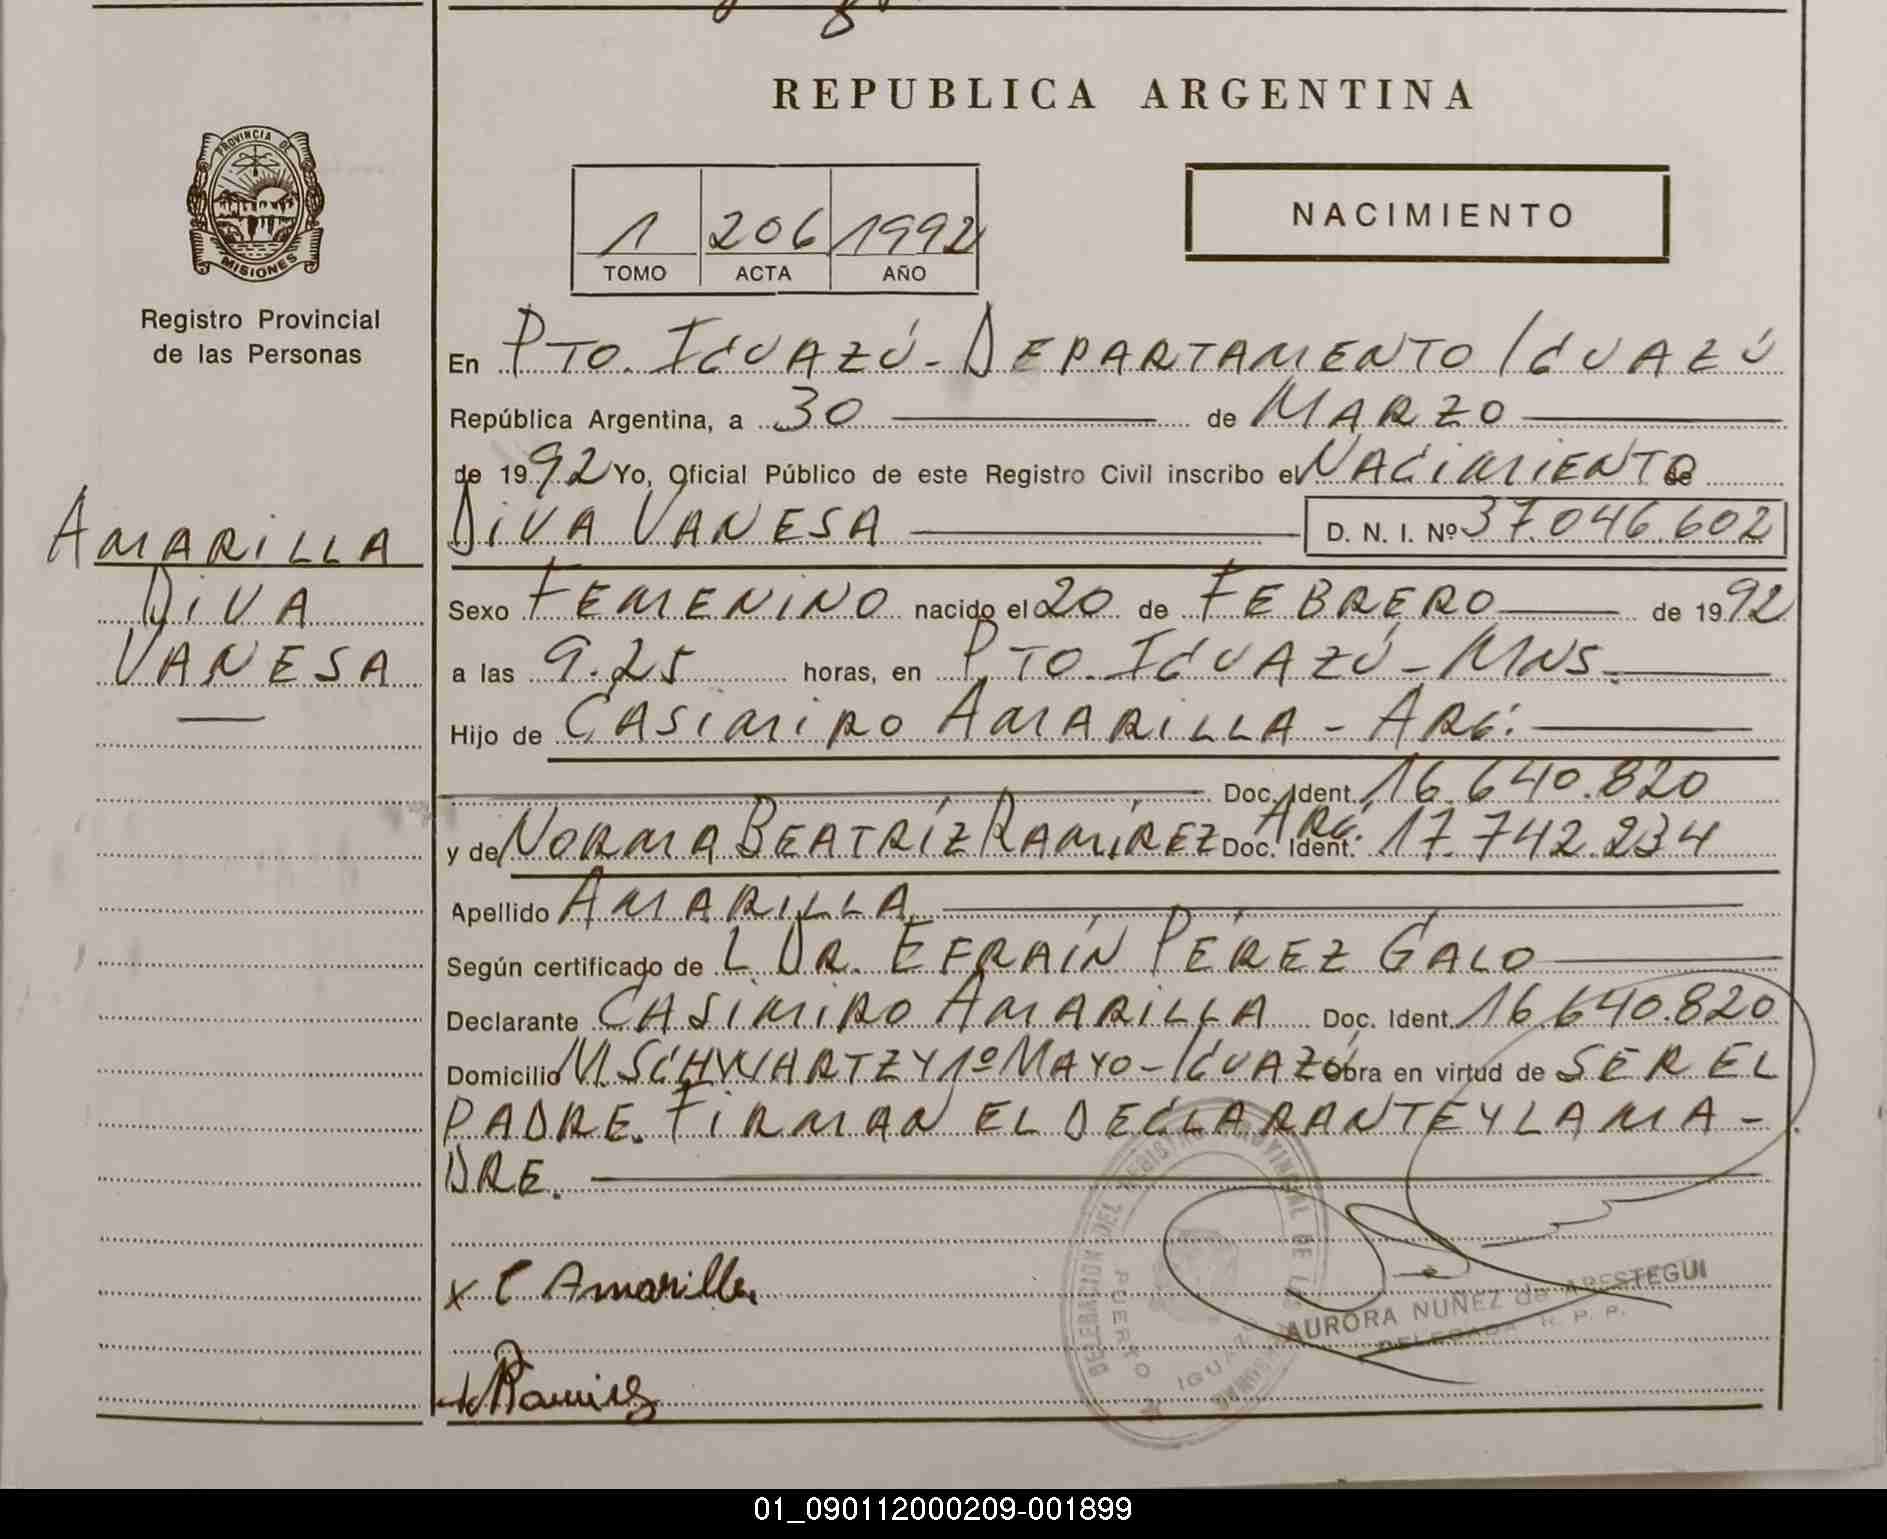 REPUBLICA ARGENTINA
PROVINCIA DE
MISIONES
Registro Provincial
de las Personas
1 206 1992
TOMO ACTA AÑO
NACIMIENTO
AMARILLA
DIVA
VANESA
En PTO. IGUAZÚ - DEPARTAMENTO IGUAZÚ
República Argentina, a 30 de MARZO
de 1992 Yo, Oficial Público de este Registro Civil inscribo el NACIMIENTO de
DIVA VANESA D. N. I. Nº 37.046.602
Sexo FEMENINO nacido el 20 de FEBRERO de 1992
a las 9.25 horas, en PTO. IGUAZÚ - MNS.
Hijo de CASIMIRO AMARILLA - ARG.
Doc. Ident. 16.640.820
y de NORMA BEATRÍZ RAMÍREZ ARG. Doc. Ident. 17.742.234
Apellido AMARILLA
Según certificado de L DR. EFRAÍN PÉREZ GALO
Declarante CASIMIRO AMARILLA Doc. Ident. 16.640.820
Domicilio M. SCHWARTZ Y 1º MAYO - IGUAZÚ obra en virtud de SER EL
PADRE. FIRMAN EL DECLARANTE Y LA MA-
DRE.
x C Amarilla
Ramirez
DELEGACION DEL REGISTRO PROVINCIAL DE LAS
PUERTO IGUAZU
AURORA NUÑEZ de ARESTEGUI
DELEGADA R. P. P.
01_090112000209-001899